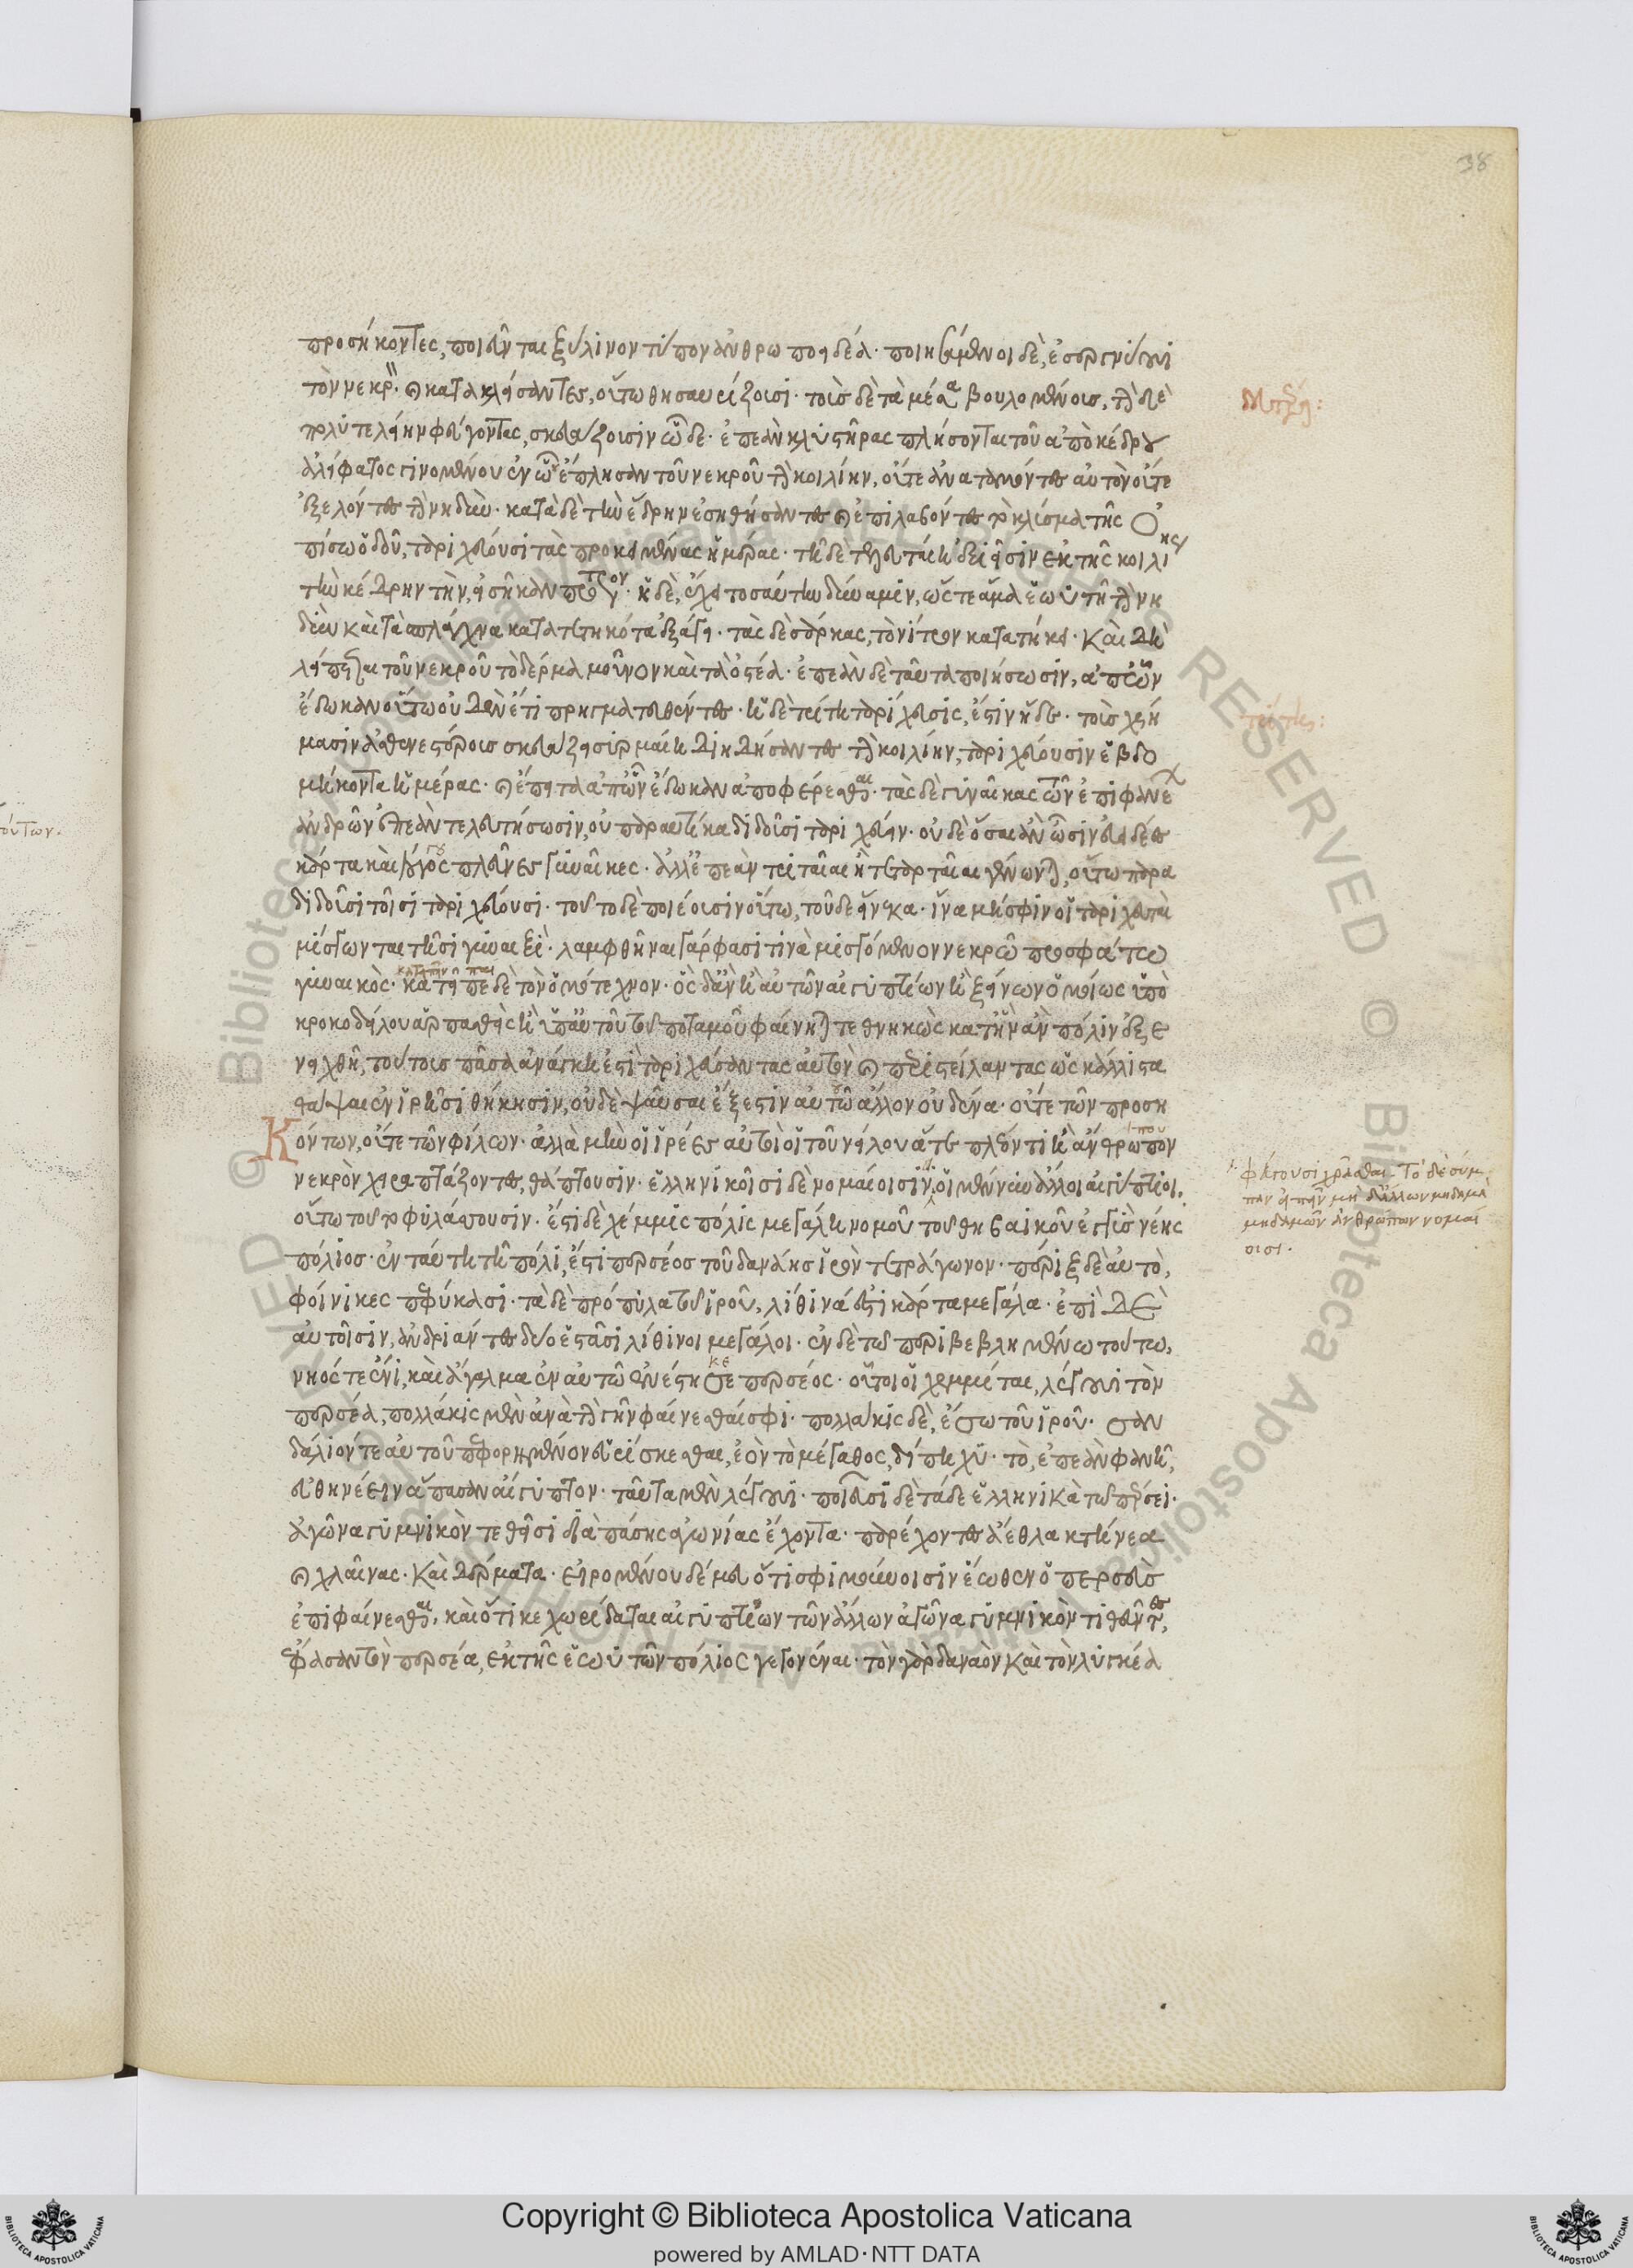 38
προσήκοντες, ποιεῦνται ξύλινον τύπον ἀνθρωποειδέα· ποιησάμενοι δὲ, ἐσεργνύουσι
τὸν νεκρ· καὶ κατακλείσαντες, οὕτω θησαυρίζουσι· τοὺσ δὲ τὰ μέσα βουλομένουσ, τὴν δὲ
πολυτελείην φεύγοντας, σκευάζουσιν ὧδε· ἐπεὰν κλυστῆρας πλήσονται τοῦ ἀπὸ κέδρου
ἀλείφατος γινομένου ἐν ὦν ἔπλησαν τοῦ νεκροῦ τὴν κοιλίην, οὔτε ἀναταμόντες αὐτὸν οὔτε
ἐξελόντες τὴν νηδύν· κατὰ δὲ τὴν ἕδρην ἐσηθήσαντες καὶ ἐπιλαβόντες τὸ κλύσμα τῆς ὀ
πίσω ὁδοῦ, ταριχεύουσι τὰς προκειμένας ἡμέρας· τῇ δὲ τελευταίῃ ἐξιεῖσιν ἐκ τῆς κοιλίης
τὴν κεδρίην τὴν ἐσῆκαν πρότερον· ἡ δὲ, ἔχει τοσαύτην δύναμιν, ὥστε ἅμα ἑωυτῇ τὴν νη
δύν καὶ τὰ σπλάγχνα κατατετηκότα ἐξάγει· τὰς δὲ σάρκας, τὸ νίτρον κατατήκει· Καὶ δὴ
λείπεται τοῦ νεκροῦ τὸ δέρμα μοῦνον καὶ τὰ ὀστέα· ἐπεὰν δὲ ταῦτα ποιήσωσιν, ἀπ' ὦν
ἔδωκαν οὕτω οὐδὲν ἔτι πρηγματευθέντες· ἡ δὲ τρίτη ταρίχευσις, ἐστὶν ἥδε· τοὺσ χρή
μασιν ἀσθενεστέρουσ σκευάζει συρμαίῃ διηθήσαντες τὴν κοιλίην, ταριχεύουσιν ἑβδο
μήκοντα ἡμέρας· καὶ ἔπειτα ἀπ' ὦν ἔδωκαν ἀποφέρεσθαι· τὰς δὲ γυναῖκας τῶν ἐπιφανε
ἀνδρῶν ἐπεὰν τελευτήσωσιν, οὐ παραυτίκα διδοῦσι ταριχεύειν· οὐδὲ ὅσαι ἂν ὦσιν εὐειδέες
κάρτα καὶ λόγου πλεῦνες γυναῖκες· ἀλλ' ἐπεὰν τριταῖαι ἢ τεταρταῖαι γένωνται, οὕτω παρα
διδοῦσι τοῖσι ταριχεύουσι· τοῦτο δὲ ποιέουσιν οὕτω, τοῦδε εἵνεκα· ἵνα μή σφιν οἱ ταριχευταὶ
μίσγωνται τῇσι γυναιξὶ· λαμφθῆναι γάρ φασί τινὰ μισγόμενον νεκρῷ προσφάτῳ
γυναικὸς· κατειπε δὲ τὸν ὁμότεχνον· ὃς δ' ἂν ἢ αὐτῶν αἰγυπτίων ἢ ξείνων ὁμοίως ὑπὸ
κροκοδείλου ἁρπαχθεὶς ἢ ὑπ' αὐτοῦ τοῦ ποταμοῦ φαίνηται τεθνηκὼς κατ' ἣν ἂν πόλιν ἐξε
νειχθῇ, τούτουσ πᾶσα ἀνάγκη ἐστὶ ταριχεύσαντας αὐτὸν καὶ περιστείλαντας ὡς κάλλιστα
θάψαι ἐν ἱρῇσι θήκῃσιν, οὐδὲ ψαῦσαι ἔξεστιν αὐτοῦ ἄλλον οὐδένα· οὔτε τῶν προση
κόντων, οὔτε τῶν φίλων· ἀλλὰ μὴν οἱ ἱρέες αὐτοὶ οἱ τοῦ νείλου ἅτε πλέον τι ἢ ἀνθρωπον
νεκρὸν χειραπτάζοντες, θάπτουσιν· ἑλληνικοῖσι δὲ νομαίοισιν, οἱ μέν νυν ἄλλοι αἰγύπτιοι,
οὕτω τοῦτο φυλάσσουσιν· ἔστι δὲ χέμμις πόλις μεγάλη νομοῦ τοῦ θηβαικοῦ ἐγγὺσ νέης
πόλιος· ἐν ταύτῃ τῇ πόλι, ἔστι περσέος τοῦ δανάησ ἱρὸν τετράγωνον· πέριξ δὲ αὐτὸ,
φοίνικες πεφύκασι· τὰ δὲ πρόπυλα τοῦ ἱροῦ, λίθινά ἐστι κάρτα μεγάλα· ἐπὶ δὲ
αὐτοῖσιν, ἀνδριάντες δύο ἑστᾶσι λίθινοι μεγάλοι· ἐν δὲ τῷ περιβεβλημένῳ τούτῳ,
νηός τε ἔνι, καὶ ἄγαλμα ἐν αὐτῷ ἐνέστηκε περσέος· οὗτοι οἱ χεμμῖται, λέγουσι τὸν
περσέα, πολλάκις μὲν ἀνὰ τὴν γῆν φαίνεσθαί σφι· πολλάκις δὲ, ἔσω τοῦ ἱροῦ· σαν
δάλιόν τε αὐτοῦ πεφορημένον εὑρίσκεσθαι, ἐὸν τὸ μέγαθος, δίπηχυ· τὸ, ἐπεὰν φανῇ,
εὐθηνέειν ἅπασαν αἴγυπτον· ταῦτα μὲν λέγουσι· ποιεῦσι δὲ τάδε ἑλληνικὰ τῷ περσέι·
ἀγῶνα γυμνικὸν τεθεῖσι διὰ πάσης ἀγωνίας ἔχοντα· παρέχοντες ἄεθλα κτήνεα
καὶ χλαίνας· Καὶ δέρματα· εἰρομένου δέ μευ ὅτι σφι μούνοισιν ἔωθεν ὁ περσεὺσ
ἐπιφαίνεσθαι, καὶ ὅτι κεχωρίδαται αἰγυπτίων τῶν ἄλλων ἀγῶνα γυμνικὸν τιθέντες,
ἔφασαν τὸν περσέα, ἐκ τῆς ἑωυτῶν πόλιος γεγονέναι· τὸν γὰρ δαναὸν Καὶ τὸν λυγκέα
τρίτης:
φεύγουσι χρᾶσθαι. Τὸ δὲ σύμ
παν εἰπεῖν μηδ' ἄλλων μηδαμὰ
μηδαμῶν ἀνθρώπων νομαί
οισι.
Copyright © Biblioteca Apostolica Vaticana
powered by AMLAD·NTT DATA